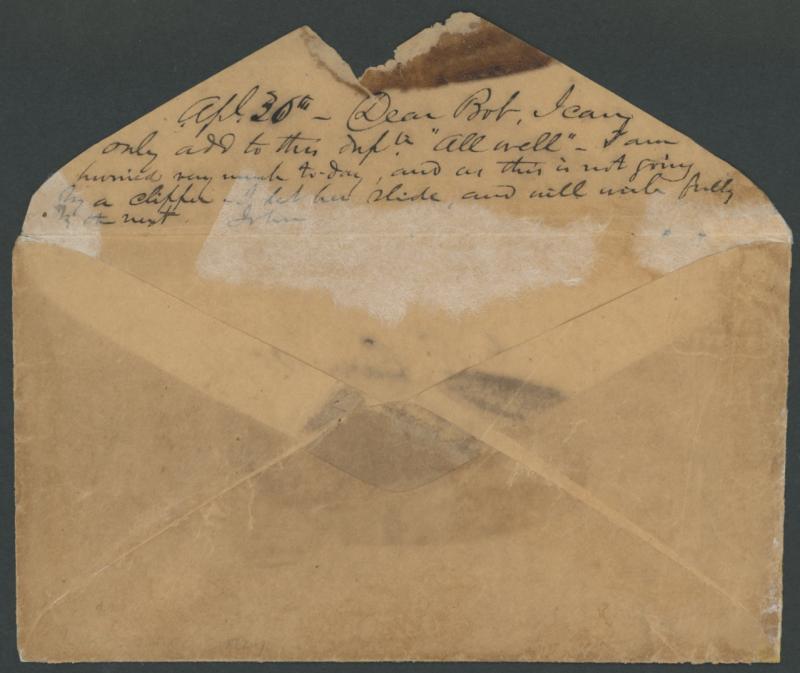 Apl. 30th – Dear Bob, I can
only add to this "All well" – I am
hurried very much to-day, and as this is not going
by a clipper – I let her slide, and will write fully
by the next. John